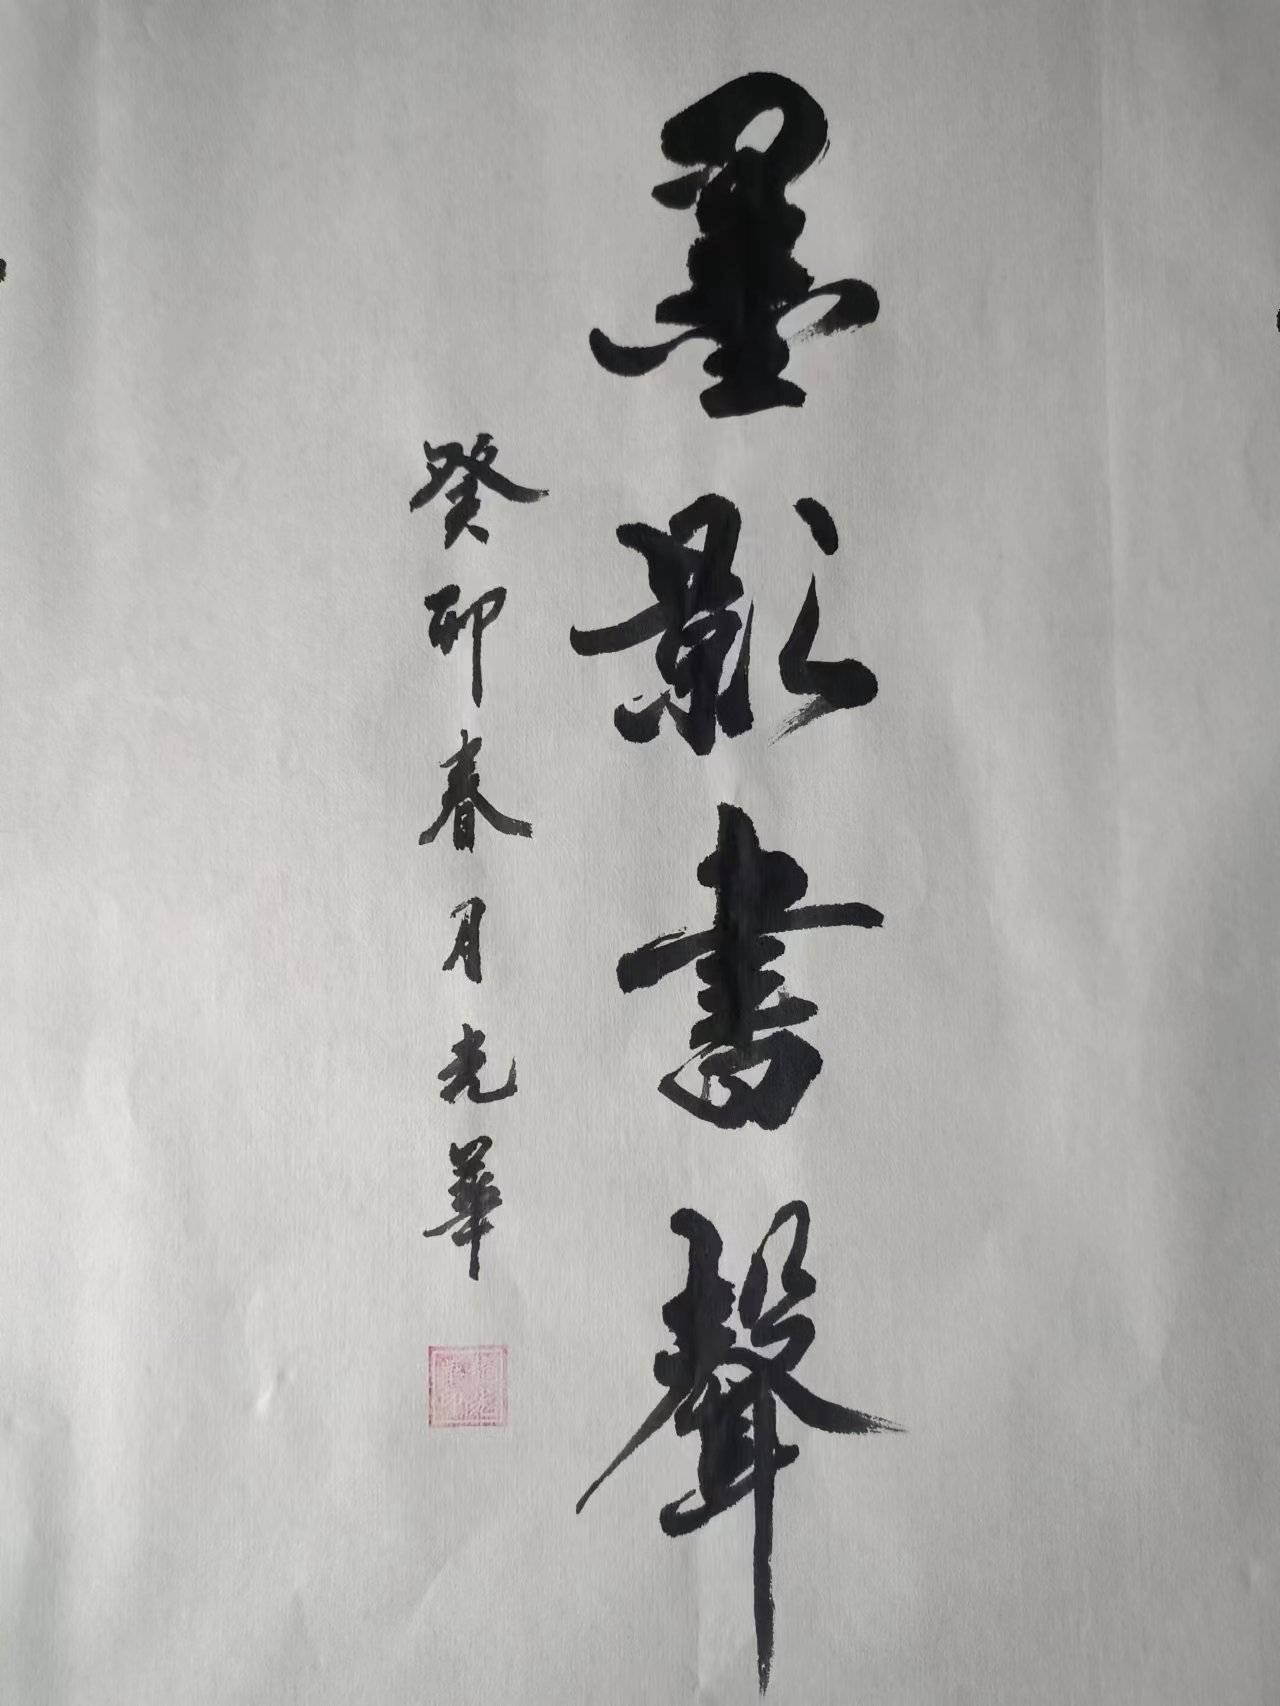 墨影書聲
癸卯春月光華